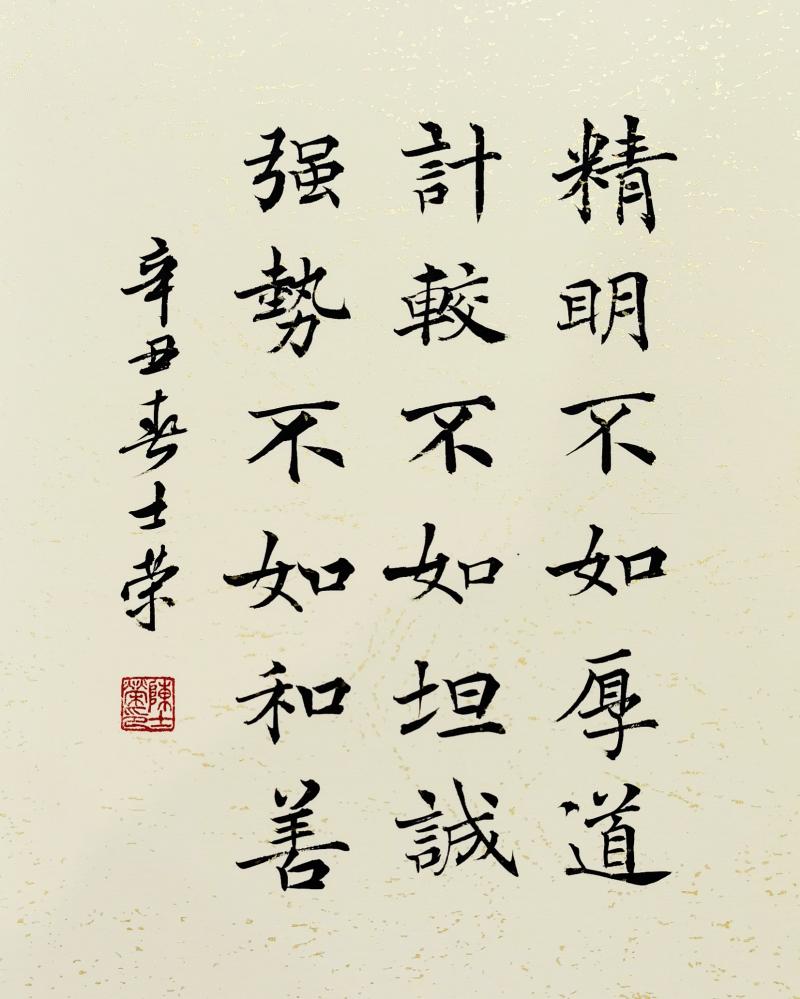 精明不如厚道
計較不如坦誠
强勢不如和善
辛丑春士荣
陳士榮印